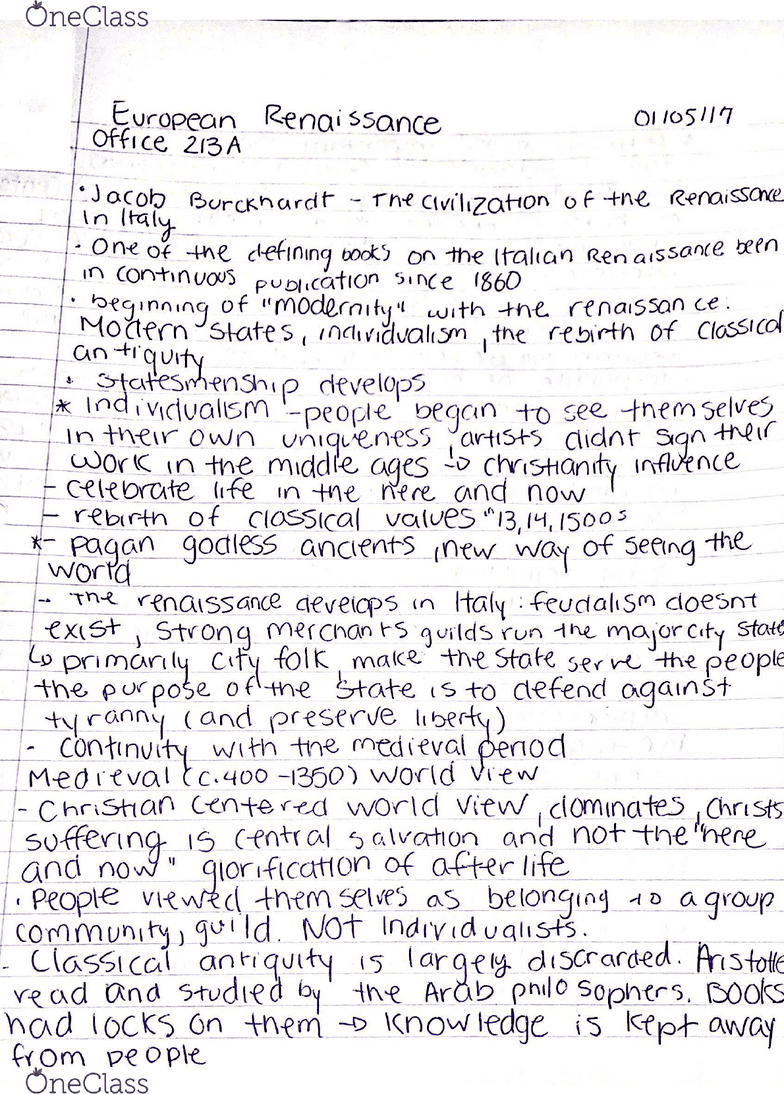 OneClass
European Renaissance 01/05/17
Office 213A
· Jacob Burckhardt - The Civilization of the Renaissance
in Italy
· One of the defining books on the Italian Renaissance been
in continuous publication since 1860
· beginning of "modernity" with the renaissance.
Modern States, individualism, the rebirth of classical
antiquity
· statesmenship develops
* Individualism - people began to see themselves
in their own uniqueness, artists didnt sign their
work in the middle ages → christianity influence
- celebrate life in the here and now
- rebirth of classical values "13,14,1500s
*- pagan godless ancients, new way of seeing the
world
- The renaissance develops in Italy: feudalism doesnt
exist, strong merchants guilds run the major city state
↳ primarily city folk, make the state serve the people
the purpose of the State is to defend against
tyranny (and preserve liberty)
- continuity with the medieval period
Medieval (c.400-1350) world view
- Christian centered world view, dominates, Christs
suffering is central salvation and not the "here
and now" glorification of afterlife
· People viewed themselves as belonging to a group
community, guild. NOT Individualists.
- Classical antiquity is largely discrarded. Aristotle
read and studied by the Arab philosophers. Books
had locks on them → knowledge is kept away
from people
OneClass